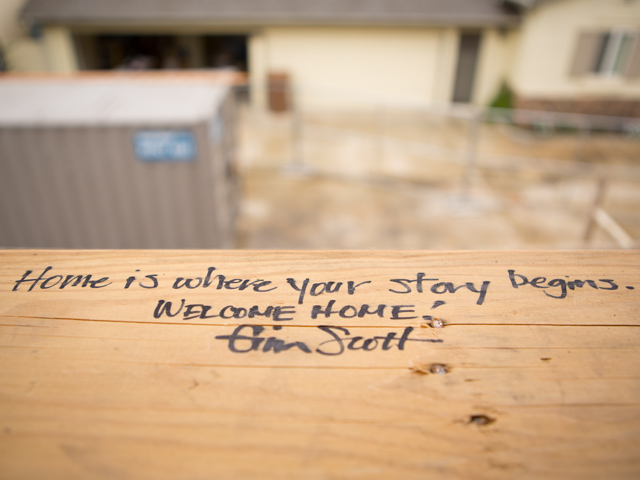 Home is where your story begins.
WELCOME HOME!
Gim Scott